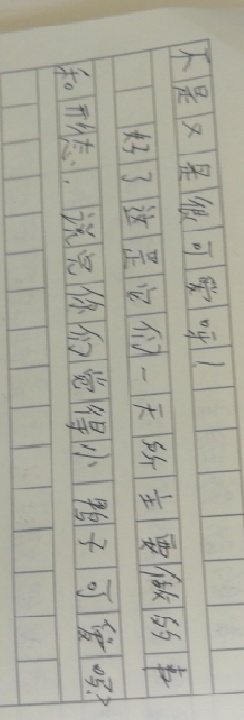 不是又是很可爱呀！
好了这是它们一天所主要做的事
和形态，说完你们觉得小鸭子可爱吗？